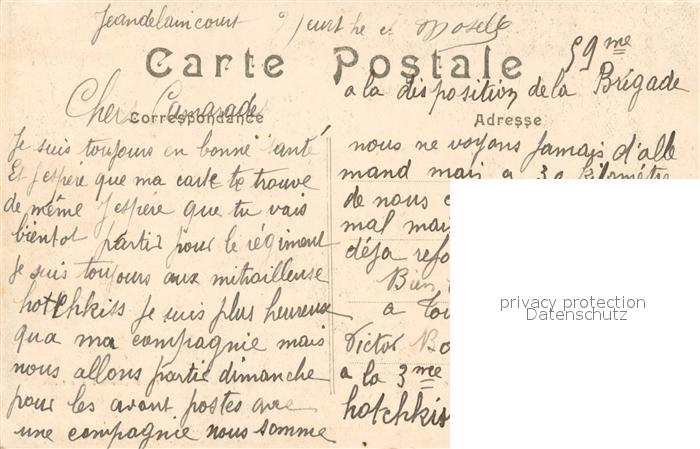 Jeandelaincourt Meurthe et Moselle
Carte Postale
59me
a la disposition de la Brigade
Chers Camarades
Correspondance
Adresse
Je suis toujours en bonne santé
Et J'espère que ma carte te trouve
de même J'espere que tu vais
bientot partir pour le régiment
Je suis toujours aux mitrailleuse
hotchkiss Je suis plus heureux
qua ma compagnie mais
nous allons partir dimanche
pour les avant postes avec
une compagnie nous somme
nous ne voyons Jamais d'alle
mand mais a 30 kilomètre
de nous
mal mais
déja
Bien
a
Victor
a la 3me
hotchkiss
privacy protection
Datenschutz